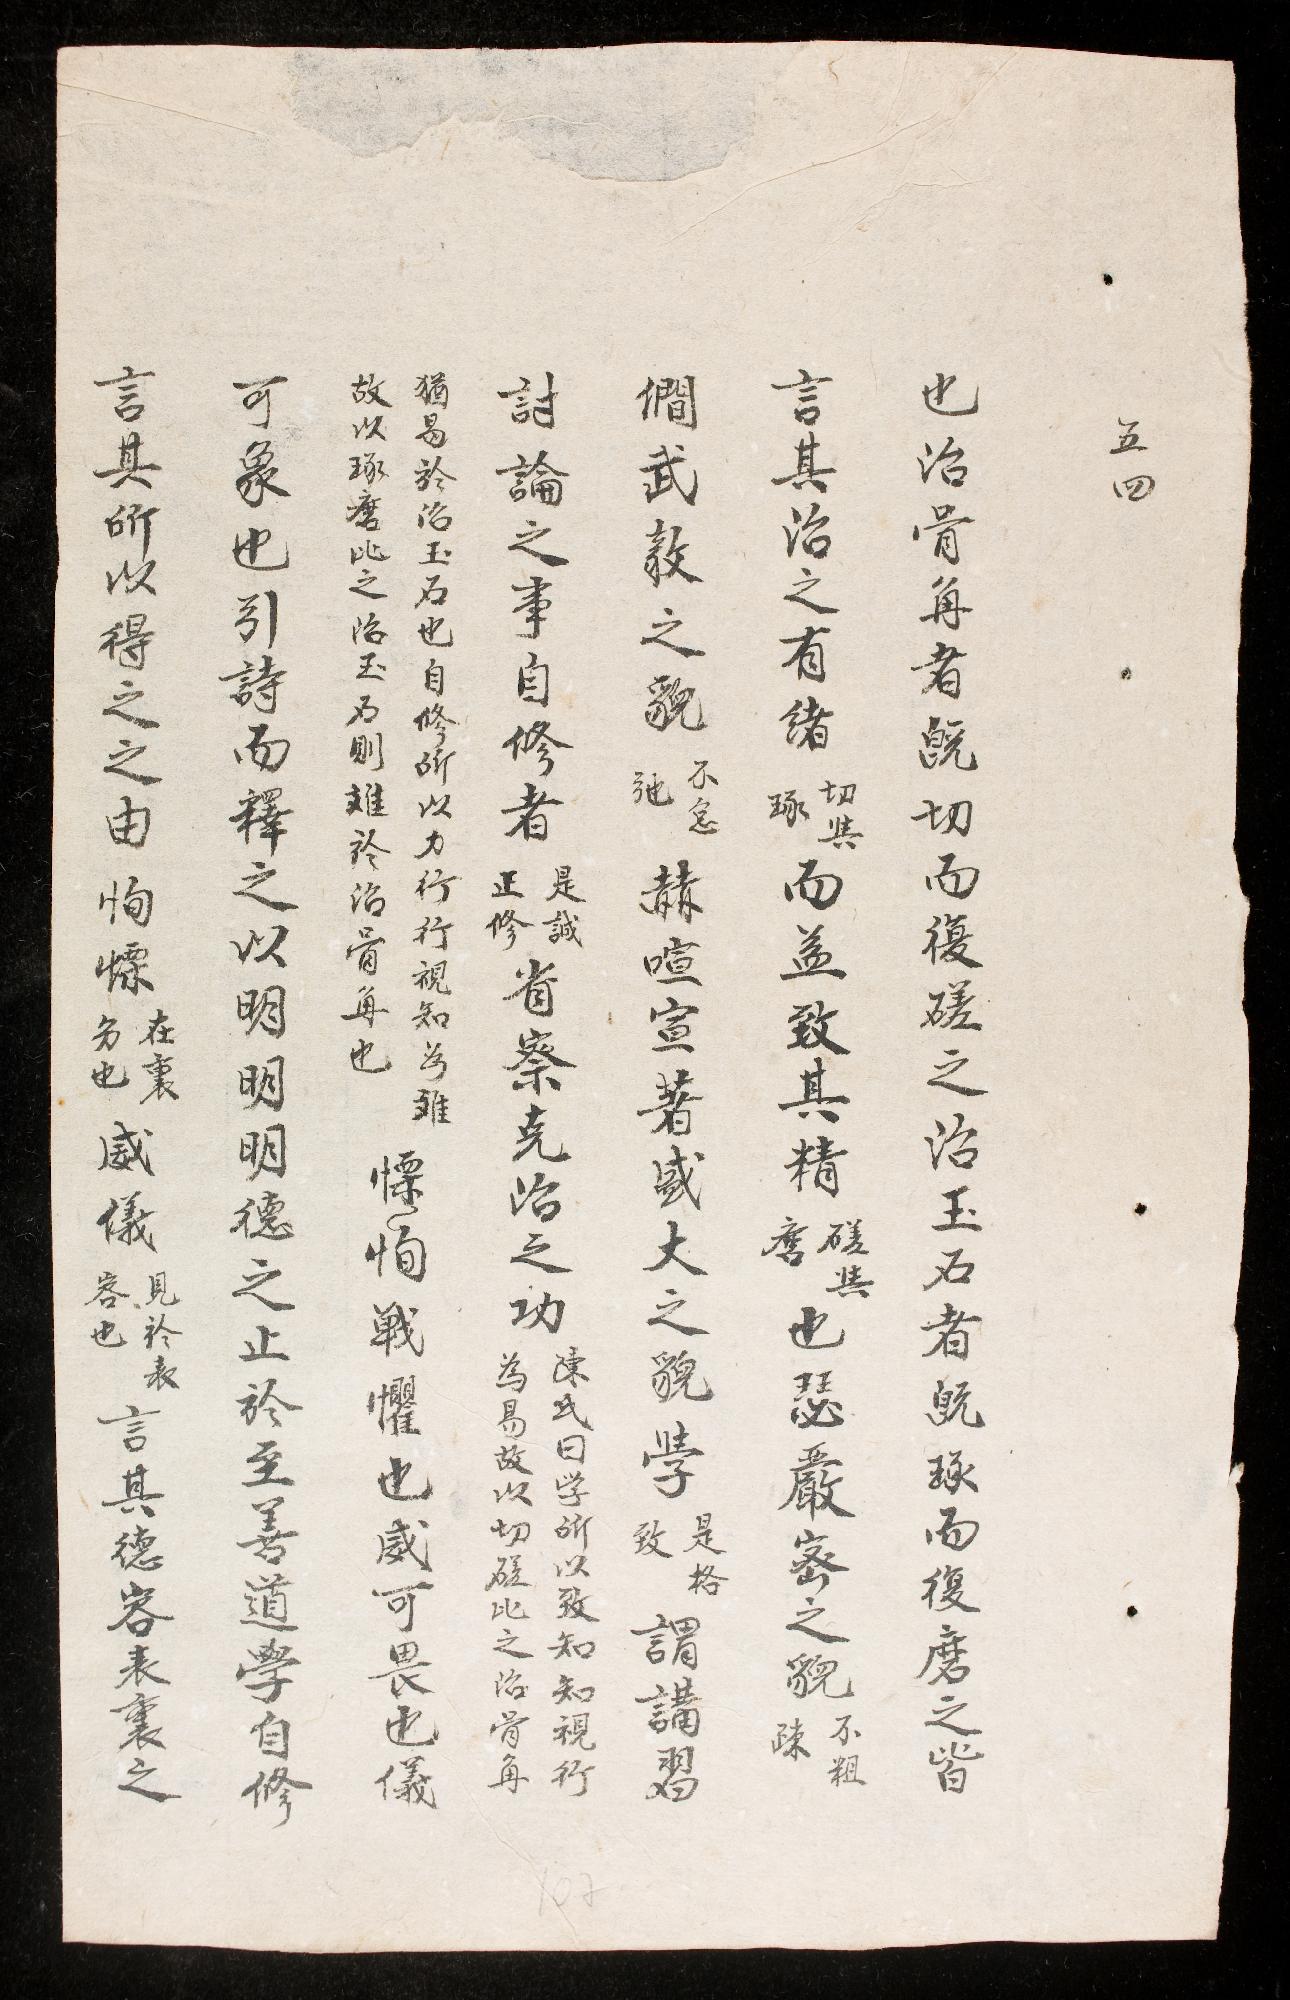 五四
也治骨角者既切而復磋之治玉石者既琢而復磨之皆
言其治之有緒切與琢而益致其精磋與磨也瑟嚴密之貌不粗疎
僩武毅之貌不怠弛赫喧宣著盛大之貌學是格致謂講習
討論之事自修者是誠正修省察克治之功陳氏曰学所以致知知視行為易故以切磋比之治骨角
猶易於治玉石也自修所以力行行視知為难故以琢磨比之治玉石則难於治骨角也慄恂戰懼也威可畏也儀
可象也引詩而釋之以明明明德之止於至善道學自修
言其所以得之之由恂慄在裏者也威儀見於表容也言其德容表裏之
107